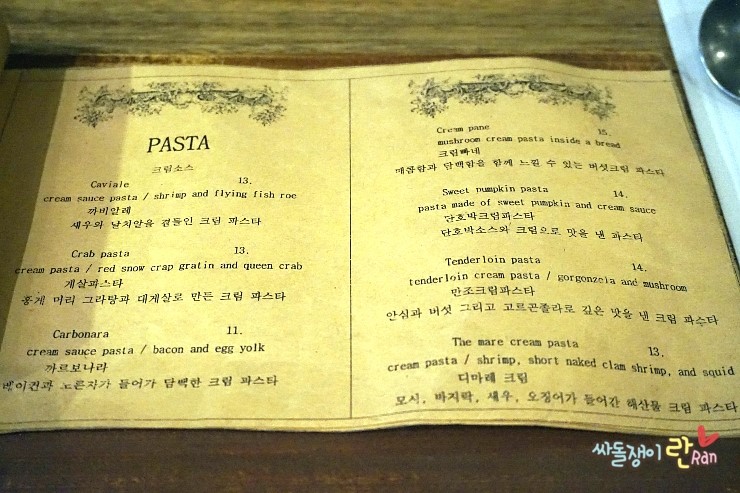 PASTA
크림소스
Caviale 13.
cream sauce pasta / shrimp and flying fish roe
까비알레
새우와 날치알을 곁들인 크림 파스타
Crab pasta 13.
cream pasta / red snow crap gratin and queen crab
게살파스타
홍게 머리 그라탕과 대게살로 만든 크림 파스타
Carbonara 11.
cream sauce pasta / bacon and egg yolk
까르보나라
베이컨과 노른자가 들어가 담백한 크림 파스타
Cream pane 15.
mushroom cream pasta inside a bread
크림빠네
매콤함과 담백함을 함께 느낄 수 있는 버섯크림 파스타
Sweet pumpkin pasta 14.
pasta made of sweet pumpkin and cream sauce
단호박크림파스타
단호박소스와 크림으로 맛을 낸 파스타
Tenderloin pasta 14.
tenderloin cream pasta / gorgonzela and mushroom
만조크림파스타
안심과 버섯 그리고 고르곤졸라로 깊은 맛을 낸 크림 파스타
The mare cream pasta 13.
cream pasta / shrimp, short naked clam shrimp, and squid
디마레 크림
모시, 바지락, 새우, 오징어가 들어간 해산물 크림 파스타
싸돌쟁이 란 Ran